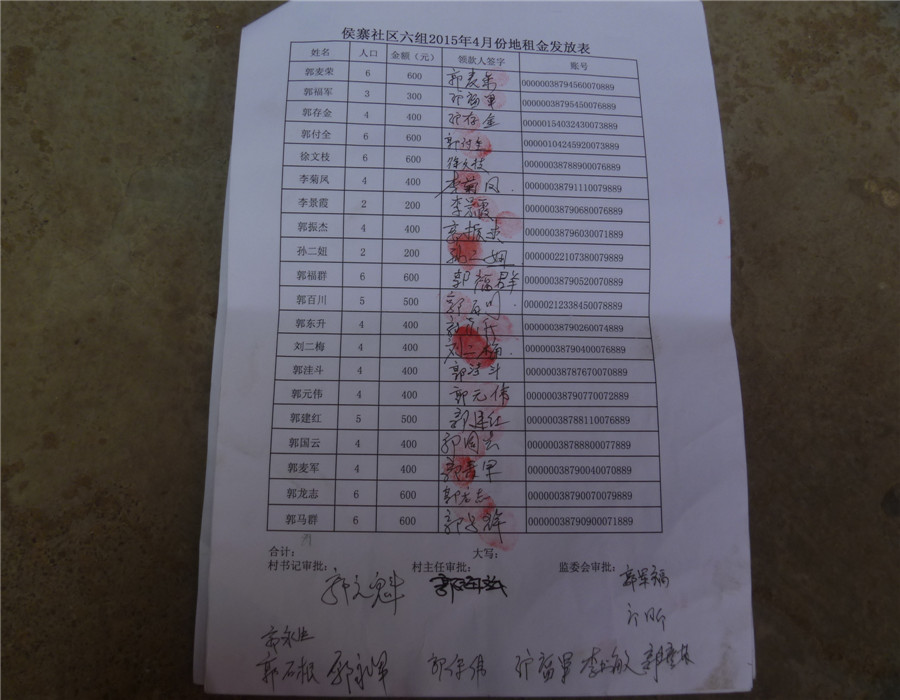 侯寨社区六组2015年4月份地租金发放表
姓名 人口 金额（元） 领款人签字 账号
郭麦荣 6 600 郭麦荣 00000038794560070889
郭福军 3 300 郭福军 00000038795450076889
郭存金 4 400 郭存金 00000154032430073889
郭付全 6 600 郭付全 00000104245920073889
徐文枝 6 600 徐文枝 00000038788900076889
李菊凤 4 400 李菊凤 00000038791110079889
李景霞 2 200 李景霞 00000038790680076889
郭振杰 4 400 郭振杰 00000038796030071889
孙二妞 2 200 孙二妞 00000022107380079889
郭福群 6 600 郭福群 00000038790520070889
郭百川 5 500 郭百川 00000212338450078889
郭东升 4 400 郭东升 00000038790260074889
刘二梅 4 400 刘二梅 00000038790400076889
郭洼斗 4 400 郭洼斗 00000038787670070889
郭元伟 4 400 郭元伟 00000038790770072889
郭建红 5 500 郭建红 00000038788110076889
郭国云 4 400 郭国云 00000038788800077889
郭麦军 4 400 郭麦军 00000038790040070889
郭龙志 6 600 郭龙志 00000038790070079889
郭马群 6 600 郭马群 00000038790900071889
合计： 大写：
村书记审批： 村主任审批： 监委会审批：
郭元魁
郭石根 郭永军 郭保伟 郭福军 李小敏